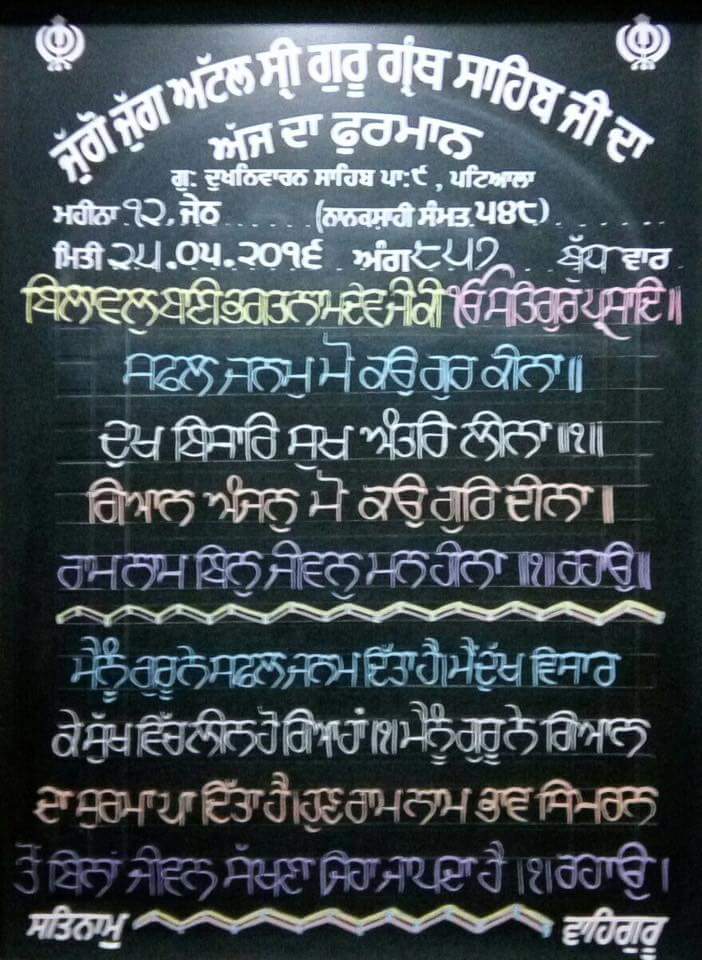 ਜੁੱਗੋ ਜੁੱਗ ਅਟੱਲ ਸ੍ਰੀ ਗੁਰੂ ਗ੍ਰੰਥ ਸਾਹਿਬ ਜੀ ਦਾ
ਅੱਜ ਦਾ ਫੁਰਮਾਨ
ਗੁ: ਦੁਖਨਿਵਾਰਨ ਸਾਹਿਬ ਪਾ:੯, ਪਟਿਆਲਾ
ਮਹੀਨਾ ੧੨, ਜੇਠ (ਨਾਨਕਸਾਹੀ ਸੰਮਤ ੫੪੮)
ਮਿਤੀ ੨੫.੦੫.੨੦੧੬ ਅੰਗ ੮੫੭ ਬੁੱਧ ਵਾਰ
ਬਿਲਾਵਲੁ ਬਾਣੀ ਭਗਤ ਨਾਮਦੇਵ ਜੀ ਕੀ ੴ ਸਤਿਗੁਰ ਪ੍ਰਸਾਦਿ॥
ਸਫਲ ਜਨਮੁ ਮੋ ਕਉ ਗੁਰ ਕੀਨਾ॥
ਦੁਖ ਬਿਸਾਰਿ ਸੁਖ ਅੰਤਰਿ ਲੀਨਾ॥੧॥
ਗਿਆਨ ਅੰਜਨੁ ਮੋ ਕਉ ਗੁਰਿ ਦੀਨਾ॥
ਰਾਮ ਨਾਮ ਬਿਨੁ ਜੀਵਨੁ ਮਨ ਹੀਨਾ ॥੧॥ ਰਹਾਉ॥
ਮੈਨੂੰ ਗੁਰੂ ਨੇ ਸਫਲ ਜਨਮ ਦਿੱਤਾ ਹੈ।ਮੈਂ ਦੁੱਖ ਵਿਸਾਰ
ਕੇ ਸੁੱਖ ਵਿੱਚ ਲੀਨ ਹੋ ਗਿਆ ਹਾਂ॥੧॥ ਮੈਨੂੰ ਗੁਰੂ ਨੇ ਗਿਆਨ
ਦਾ ਸੁਰਮਾ ਪਾ ਦਿੱਤਾ ਹੈ।ਹੁਣ ਰਾਮ ਨਾਮ ਭਾਵ ਸਿਮਰਨ
ਤੋਂ ਬਿਨਾਂ ਜੀਵਨ ਸੱਖਣਾ ਜਿਹਾ ਜਾਪਦਾ ਹੈ।੧।ਰਹਾਉ।
ਸਤਿਨਾਮੁ ਵਾਹਿਗੁਰੂ